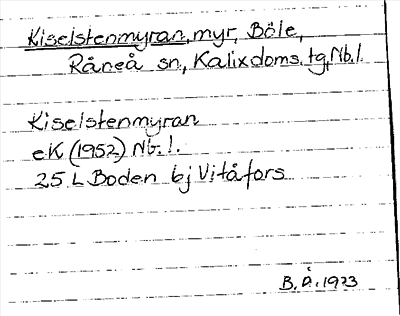 Kiselstenmyran, myr, Böle,
Råneå sn, Kalix doms. tg, Nb. l.
Kiselstenmyran
eK (1952) Nb. l.
25 L Boden bj Vitåfors
B. Å. 1973